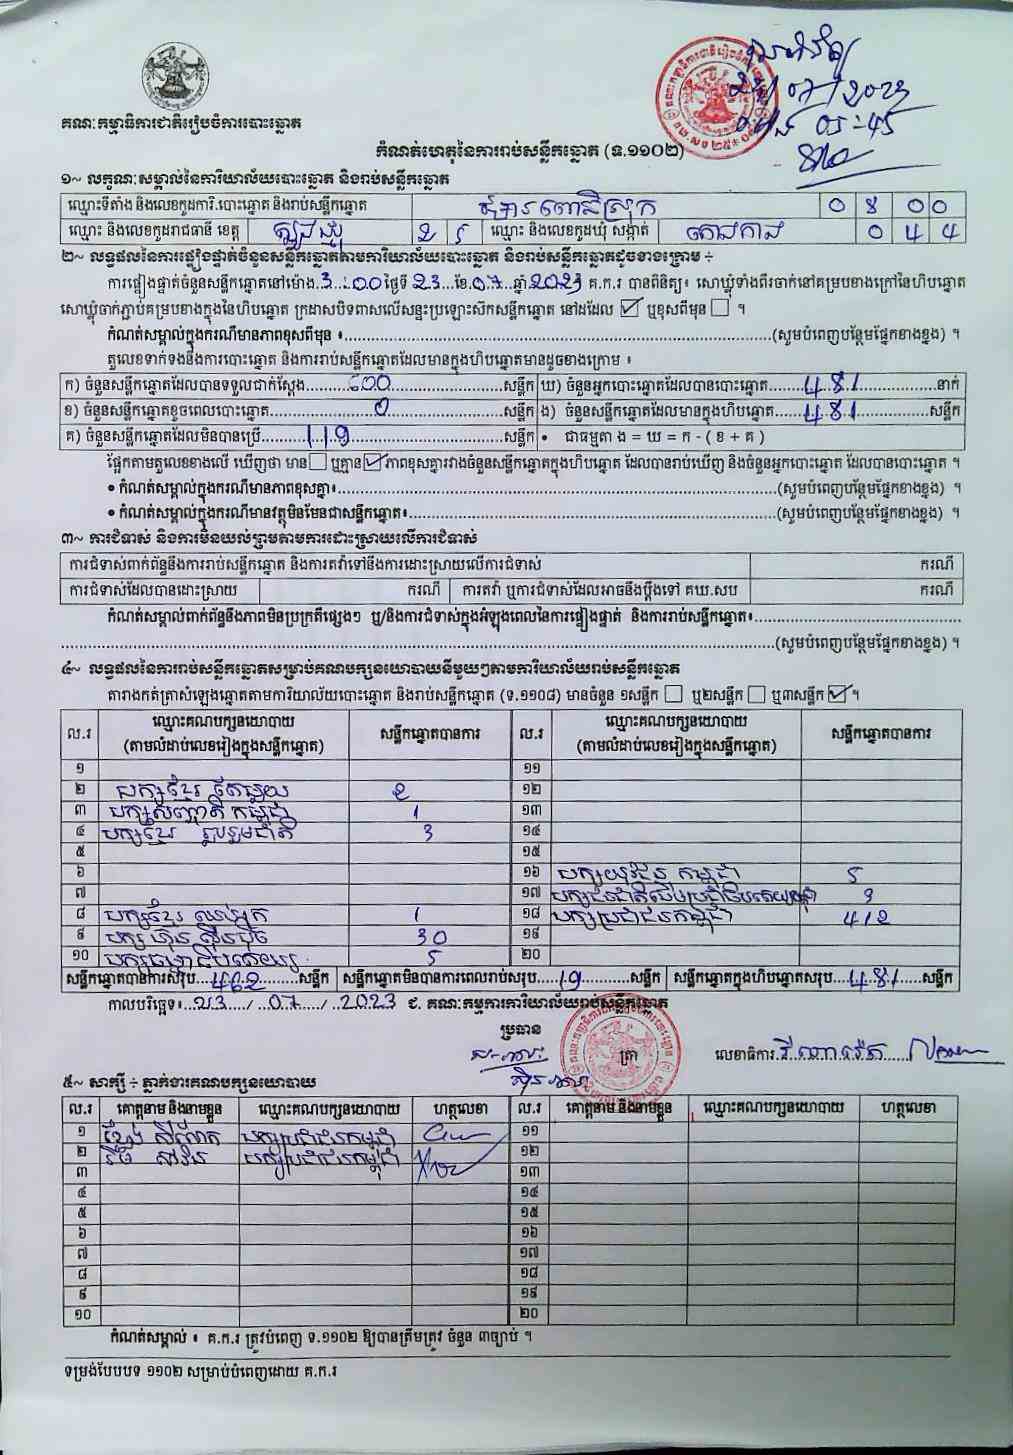 គណៈកម្មាធិការជាតិរៀបចំការបោះឆ្នោត
២៣/07/2023
05:45
កំណត់ហេតុនៃការរាប់សន្លឹកឆ្នោត (ទ.១១០២)
១~ លក្ខណៈសម្គាល់នៃការិយាល័យបោះឆ្នោត និងរាប់សន្លឹកឆ្នោត
ឈ្មោះទីតាំង និងលេខកូដការិ.បោះឆ្នោត និងរាប់សន្លឹកឆ្នោត 0 8 0 0
ឈ្មោះ និងលេខកូដរាជធានី ខេត្ត ត្បូងឃ្មុំ 2 5 ឈ្មោះ និងលេខកូដឃុំ សង្កាត់ 0 4 4
២~ លទ្ធផលនៃការផ្ទៀងផ្ទាត់ចំនួនសន្លឹកឆ្នោតតាមការិយាល័យបោះឆ្នោត និងរាប់សន្លឹកឆ្នោតដូចខាងក្រោម ÷
ការផ្ទៀងផ្ទាត់ចំនួនសន្លឹកឆ្នោតនៅម៉ោង.3:00ថ្ងៃទី 23...ខែ.07...ឆ្នាំ 2023 គ.ក.រ បានពិនិត្យ៖ សោឃ្លុំទាំងពីរចាក់នៅគម្របខាងក្រៅនៃហិបឆ្នោត
សោឃ្លុំចាក់ភ្ជាប់គម្របខាងក្នុងនៃហិបឆ្នោត ក្រដាសបិទពាសលើសន្ទះប្រឡោះស៊កសន្លឹកឆ្នោត នៅដដែល ☑ ឬខុសពីមុន ☐ ។
កំណត់សម្គាល់ក្នុងករណីមានភាពខុសពីមុន ៖...(សូមបំពេញបន្ថែមផ្នែកខាងខ្នង) ។
តួលេខទាក់ទងនឹងការបោះឆ្នោត និងការរាប់សន្លឹកឆ្នោតដែលមានក្នុងហិបឆ្នោតមានដូចខាងក្រោម ៖
ក) ចំនួនសន្លឹកឆ្នោតដែលបានទទួលជាក់ស្តែង...600...សន្លឹក ឃ) ចំនួនអ្នកបោះឆ្នោតដែលបានបោះឆ្នោត...481...នាក់
ខ) ចំនួនសន្លឹកឆ្នោតខូចពេលបោះឆ្នោត...0...សន្លឹក ង) ចំនួនសន្លឹកឆ្នោតដែលមានក្នុងហិបឆ្នោត...481...សន្លឹក
គ) ចំនួនសន្លឹកឆ្នោតដែលមិនបានប្រើ...119...សន្លឹក • ជាធម្មតា ង = ឃ = ក - ( ខ + គ )
ផ្អែកតាមតួលេខខាងលើ ឃើញថា មាន ☐ ឬគ្មាន ☑ ភាពខុសគ្នារវាងចំនួនសន្លឹកឆ្នោតក្នុងហិបឆ្នោត ដែលបានរាប់ឃើញ និងចំនួនអ្នកបោះឆ្នោត ដែលបានបោះឆ្នោត ។
• កំណត់សម្គាល់ក្នុងករណីមានភាពខុសគ្នា៖...(សូមបំពេញបន្ថែមផ្នែកខាងខ្នង) ។
• កំណត់សម្គាល់ក្នុងករណីមានវត្ថុមិនមែនជាសន្លឹកឆ្នោត៖...(សូមបំពេញបន្ថែមផ្នែកខាងខ្នង) ។
៣~ ការជំទាស់ និងការមិនយល់ព្រមតាមការដោះស្រាយលើការជំទាស់
ការជំទាស់ពាក់ព័ន្ធនឹងការរាប់សន្លឹកឆ្នោត និងការតវ៉ាទៅនឹងការដោះស្រាយលើការជំទាស់ ករណី
ការជំទាស់ដែលបានដោះស្រាយ ករណី ការតវ៉ា ឬការជំទាស់ដែលអាចនឹងប្តឹងទៅ គឃ.សប ករណី
កំណត់សម្គាល់ពាក់ព័ន្ធនឹងភាពមិនប្រក្រតីផ្សេងៗ ឬ/និងការជំទាស់ក្នុងអំឡុងពេលនៃការផ្ទៀងផ្ទាត់ និងការរាប់សន្លឹកឆ្នោត៖...
...(សូមបំពេញបន្ថែមផ្នែកខាងខ្នង) ។
៤~ លទ្ធផលនៃការរាប់សន្លឹកឆ្នោតសម្រាប់គណបក្សនយោបាយនីមួយៗតាមការិយាល័យរាប់សន្លឹកឆ្នោត
តារាងកត់ត្រាសំឡេងឆ្នោតតាមការិយាល័យបោះឆ្នោត និងរាប់សន្លឹកឆ្នោត (ទ.១១០៨) មានចំនួន ១សន្លឹក ☐ ឬ២សន្លឹក ☐ ឬ៣សន្លឹក ☑ ។
ល.រ ឈ្មោះគណបក្សនយោបាយ (តាមលំដាប់លេខរៀងក្នុងសន្លឹកឆ្នោត) សន្លឹកឆ្នោតបានការ ល.រ ឈ្មោះគណបក្សនយោបាយ (តាមលំដាប់លេខរៀងក្នុងសន្លឹកឆ្នោត) សន្លឹកឆ្នោតបានការ
១ ១១
២ បក្សខ្មែរតែមួយ 2 ១២
៣ បក្សសញ្ជាតិកម្ពុជា 1 ១៣
៤ បក្សខ្មែររួបរួមជាតិ 3 ១៤
៥ ១៥
៦ ១៦ បក្សយុវជនកម្ពុជា 5
៧ ១៧ 3
៨ បក្សខ្មែរ 1 ១៨ បក្សប្រជាជនកម្ពុជា 412
៩ បក្សហ៊្វុនស៊ិនប៉ិច 30 ១៩
១០ 5 ២០
សន្លឹកឆ្នោតបានការសរុប...462...សន្លឹក សន្លឹកឆ្នោតមិនបានការពេលរាប់សរុប...19...សន្លឹក សន្លឹកឆ្នោតក្នុងហិបឆ្នោតសរុប...481...សន្លឹក
កាលបរិច្ឆេទ៖...23.../...07.../...2023 ជ. គណៈកម្មការការិយាល័យរាប់សន្លឹកឆ្នោត
ប្រធាន
ត្រា
លេខាធិការ
៥~ សាក្សី ÷ ភ្នាក់ងារគណបក្សនយោបាយ
ល.រ គោត្តនាម និងនាមខ្លួន ឈ្មោះគណបក្សនយោបាយ ហត្ថលេខា ល.រ គោត្តនាម និងនាមខ្លួន ឈ្មោះគណបក្សនយោបាយ ហត្ថលេខា
១ បក្សប្រជាជនកម្ពុជា ១១
២ បក្សប្រជាជនកម្ពុជា ១២
៣ ១៣
៤ ១៤
៥ ១៥
៦ ១៦
៧ ១៧
៨ ១៨
៩ ១៩
១០ ២០
កំណត់សម្គាល់ ៖ គ.ក.រ ត្រូវបំពេញ ទ.១១០២ ឱ្យបានត្រឹមត្រូវ ចំនួន ៣ច្បាប់ ។
ទម្រង់បែបបទ ១១០២ សម្រាប់បំពេញដោយ គ.ក.រ